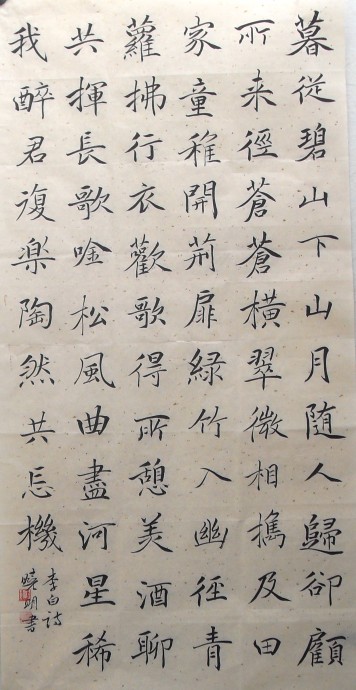 暮從碧山下山月隨人歸卻顧
所来徑蒼蒼橫翠微相攜及田
家童稚開荊扉綠竹入幽徑青
蘿拂行衣歡歌得所憩美酒聊
共揮長歌唫松風曲盡河星稀
我醉君復楽陶然共忘機
李白詩
曉明書